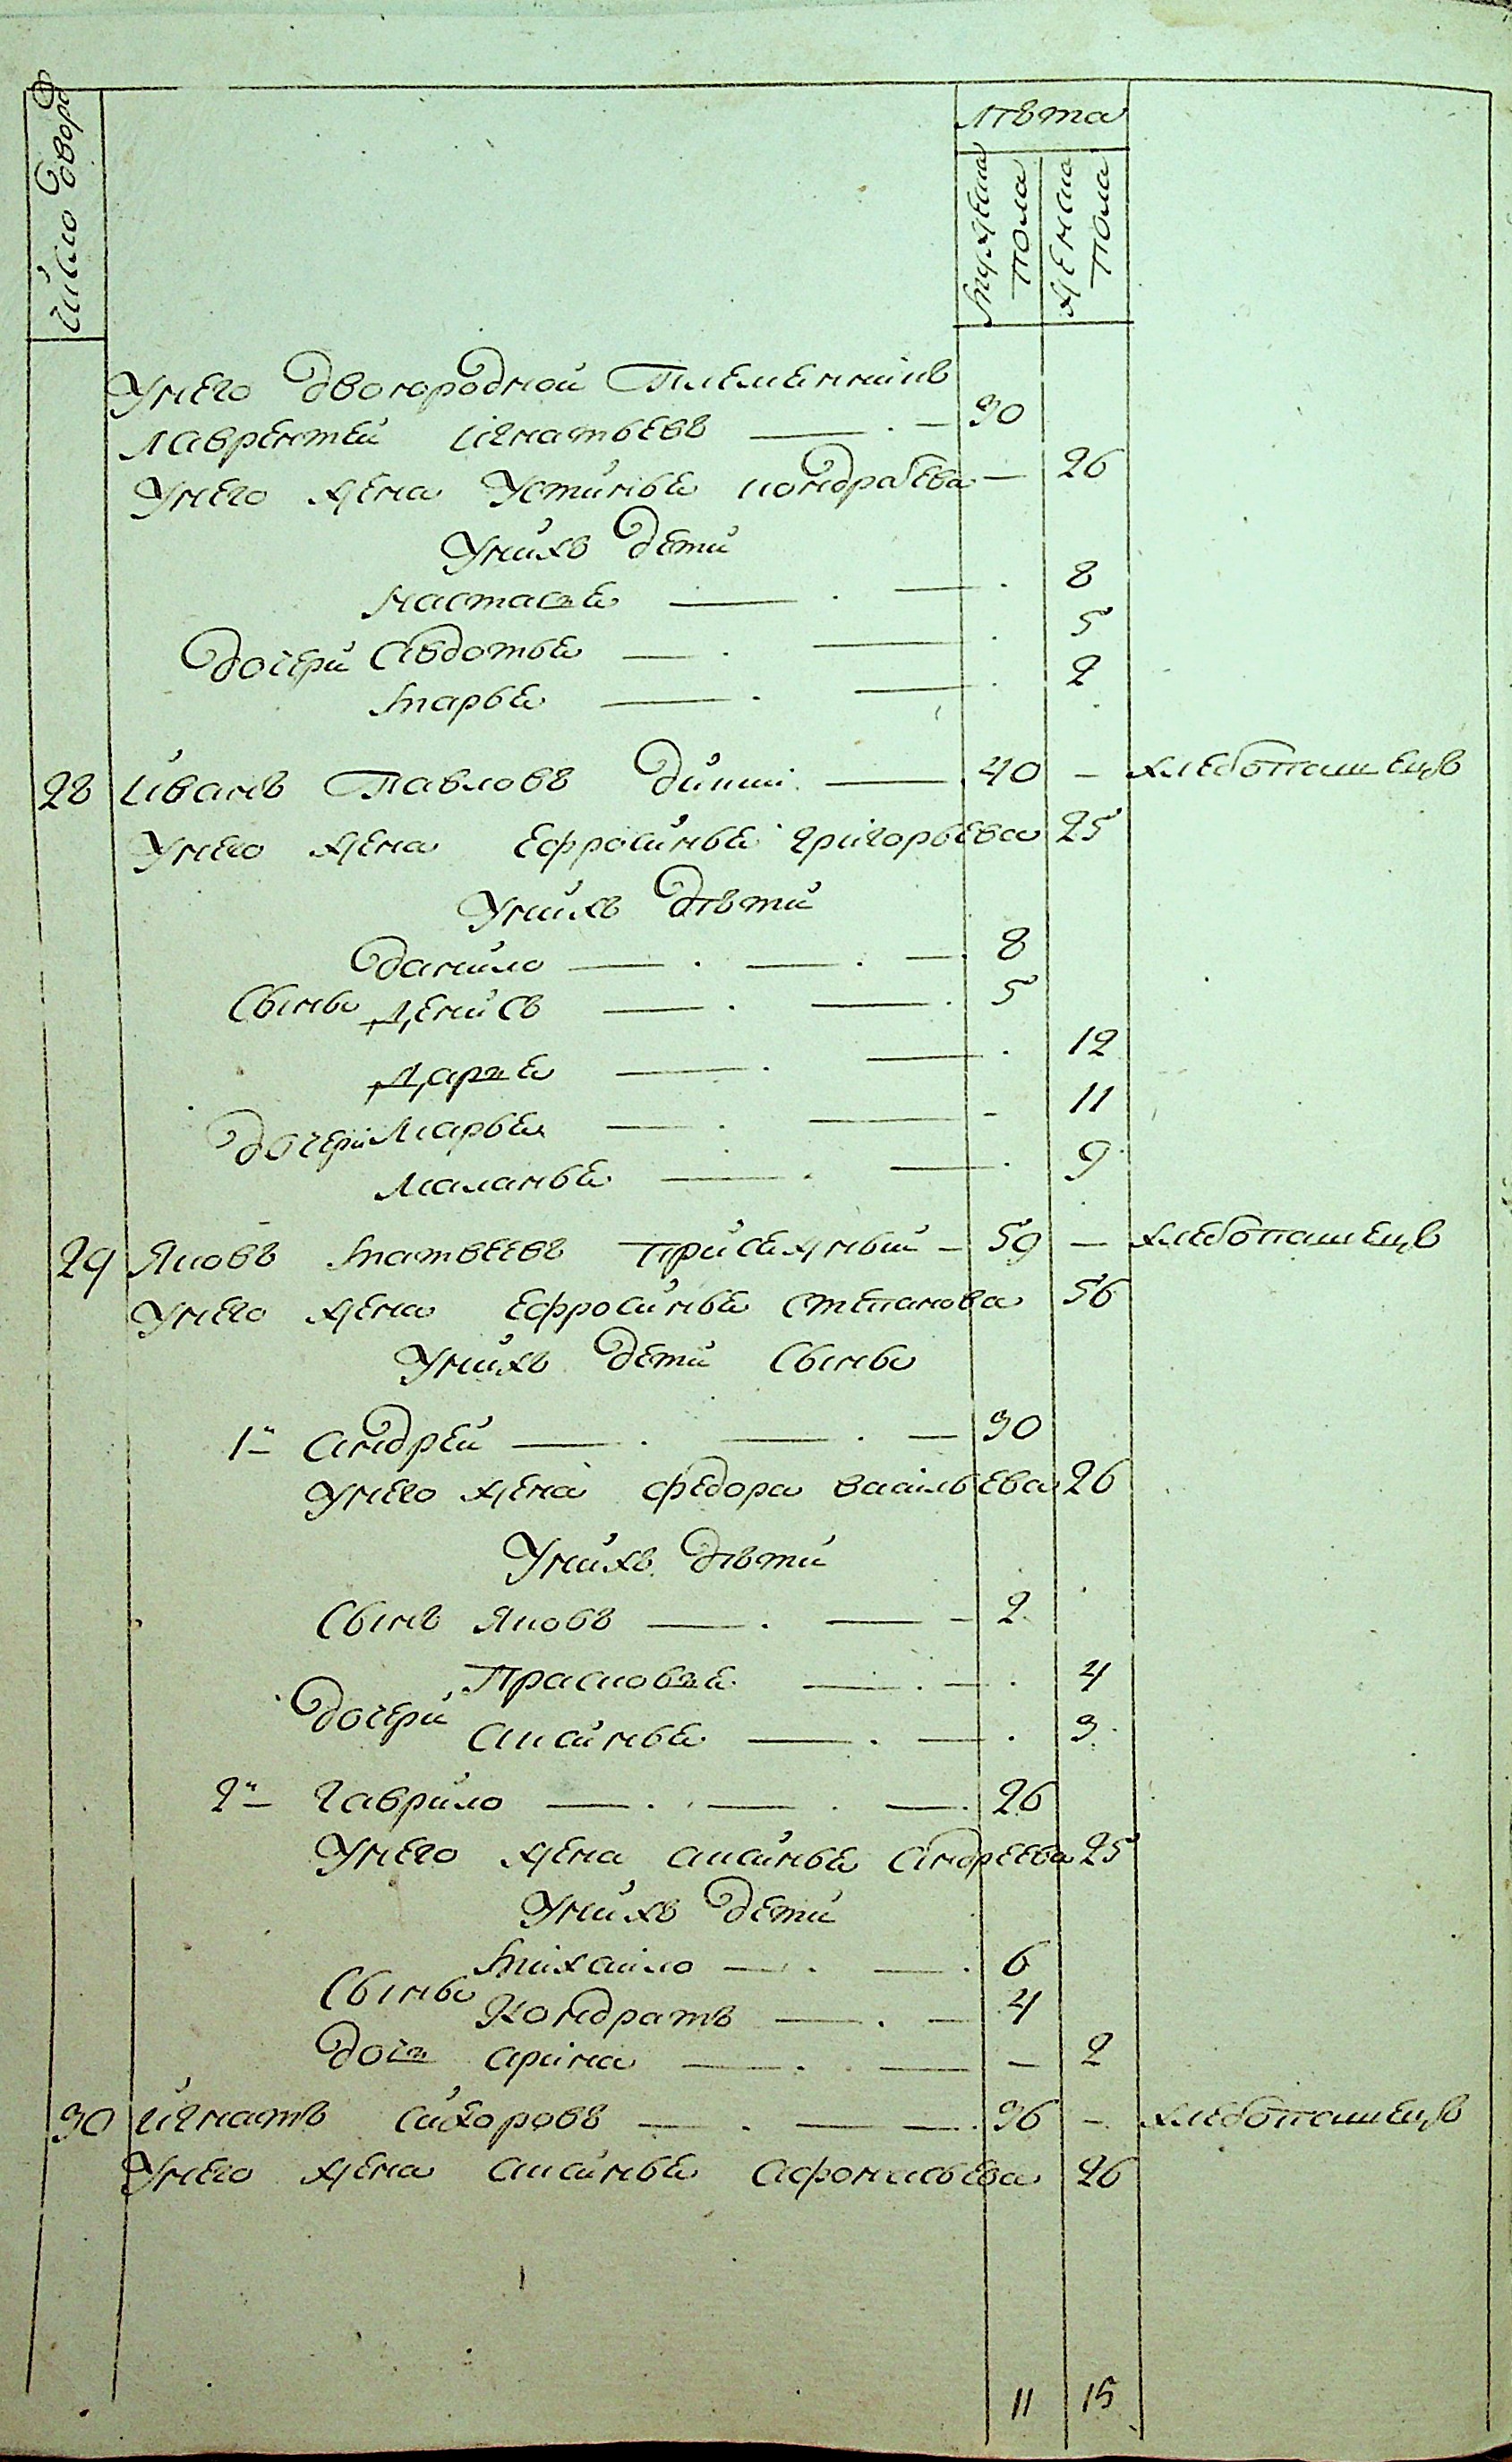 Число двора
лѣта
мужеска пола
женска пола
Унего двоюродной племенникъ
лаврентей игнатьевъ — 30
Унего жена Устинья кондратева — 26
Унихъ дети
настасья — 8
дочери авдотья — 5
марья — 2
28 иванъ павловъ — 40 — хлебопашецъ
Унего жена ефросинья григорьева 25
Унихъ дѣти
данило — 8
Сынья денисъ — 5
Дарья — 12
дочери Марья — 11
Маланья — 9
29 Яковъ матвеевъ присяжный — 59 — хлебопашецъ
Унего жена ефросинья степанова 56
Унихъ дети Сынья
1й андрей — 30
Унего жена федора васильева 26
Унихъ дѣти
Сынъ Яковъ — 2
Прасковья — 4
дочери аксинья — 3
2й гаврило — 26
Унего жена аксинья андреева 25
Унихъ дети
михаило — 6
Сынья Кондратъ — 4
дочь арина — 2
30 игнатъ сидоровъ — 36 — хлебопашецъ
Унего жена аксинья афонасьева 26
11 15